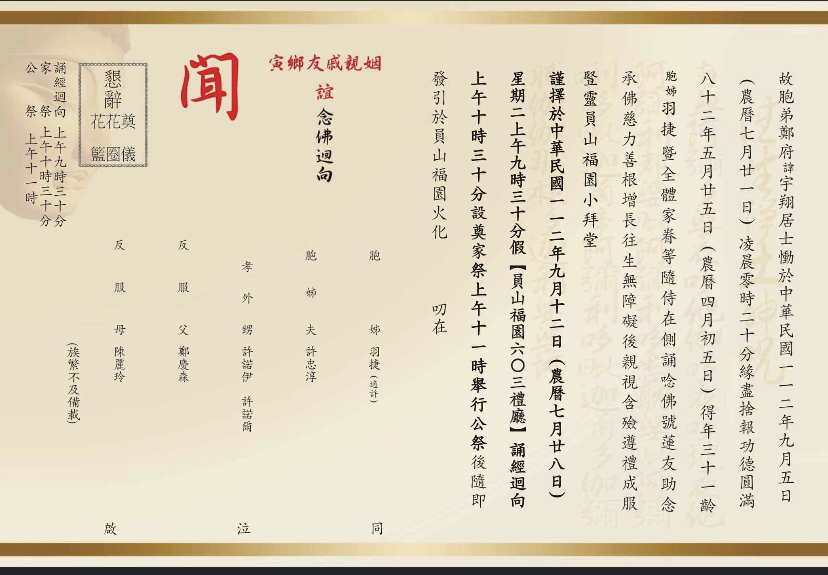 故胞弟鄭府諱宇翔居士慟於中華民國一一二年九月五日
(農曆七月廿一日)凌晨零時二十分緣盡捨報功德圓滿
八十二年五月廿五日(農曆四月初五日)得年三十一齡
胞姊羽捷暨全體家眷等隨侍在側誦唸佛號蓮友助念
承佛慈力善根增長往生無障礙後親視含殮遵禮成服
豎靈員山福園小拜堂
謹擇於中華民國一一二年九月十二日(農曆七月廿八日)
星期二上午九時三十分假【員山福園六〇三禮廳】誦經迴向
上午十時三十分設奠家祭上午十一時舉行公祭後隨即
發引於員山福園火化 叨在
姻親戚友鄉寅
誼 念佛迴向
聞
胞姊 羽捷(適許)
胞姊夫 許忠淳
孝外甥 許諾伊 許諾爾
反服父 鄭慶森
反服母 陳麗玲
(族繁不及備載)
同泣啟
懇辭
奠儀
花圈
花籃
誦經迴向 上午九時三十分
家祭 上午十時三十分
公祭 上午十一時